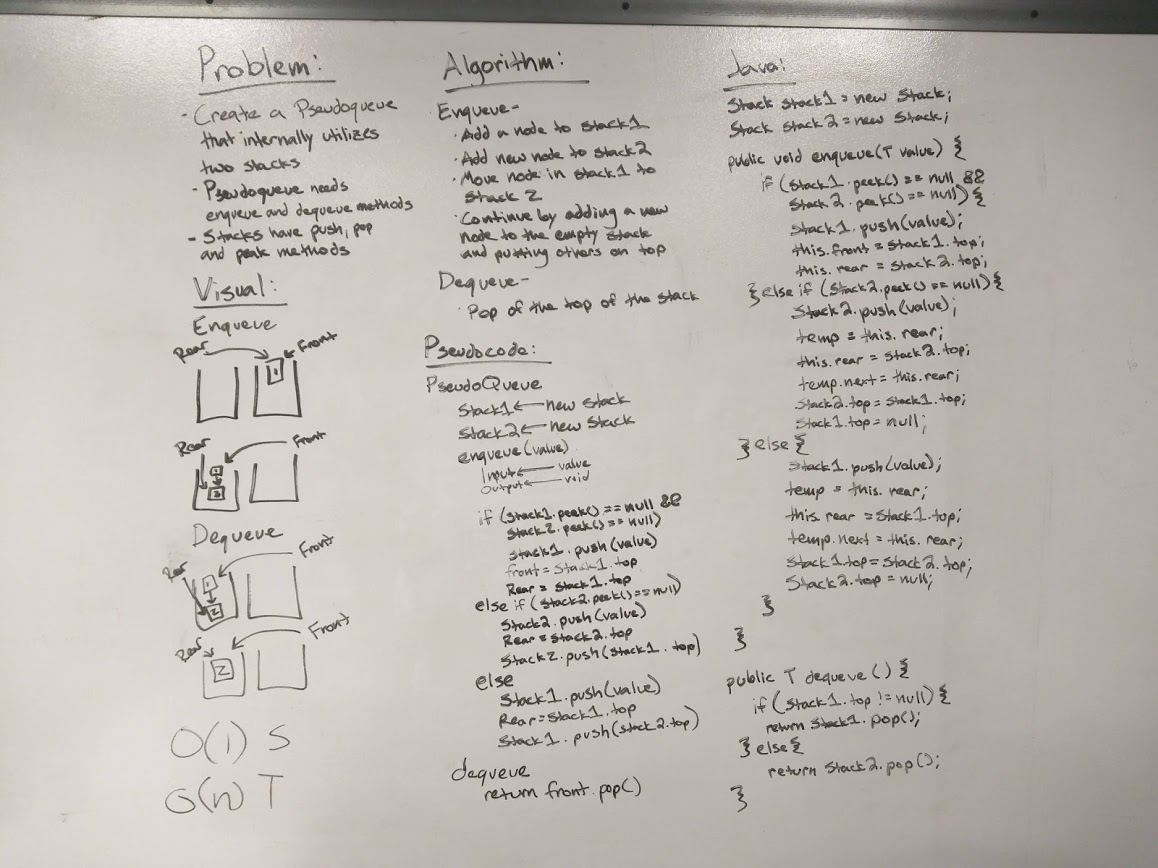 Problem:
- Create a Pseudoqueue
that internally utilizes
two stacks
- Pseudoqueue needs
enqueue and dequeue methods
- Stacks have push, pop
and peak methods
Visual:
Enqueue
Rear
Front
1
Rear
Front
1
2
Dequeue
Front
Rear
1
2
Front
Rear
2
O(1) S
O(n) T
Algorithm:
Enqueue-
· Add a node to stack1
· Add new node to stack2
· Move node in stack1 to
stack 2
· Continue by adding a new
node to the empty stack
and putting others on top
Dequeue-
· Pop of the top of the stack
Pseudocode:
PseudoQueue
Stack1 ← new stack
Stack2 ← new Stack
enqueue(value)
Input ← value
Output ← void
if (stack1.peek() == null &&
Stack2.peek() == null)
Stack1.push(value)
front = Stack1.top
Rear = Stack1.top
else if (Stack2.peek() == null)
Stack2.push(value)
Rear = Stack2.top
Stack2.push(stack1.top)
else
Stack1.push(value)
Rear = Stack1.top
Stack1.push(stack2.top)
dequeue
return front.pop()
Java:
Stack stack1 = new Stack;
Stack stack2 = new Stack;
public void enqueue(T value) {
if (stack1.peek() == null &&
Stack2.peek() == null) {
Stack1.push(value);
this.front = Stack1.top;
this.rear = Stack2.top;
} else if (Stack2.peek() == null) {
Stack2.push(value);
temp = this.rear;
this.rear = Stack2.top;
temp.next = this.rear;
Stack2.top = Stack1.top;
Stack1.top = null;
} else {
Stack1.push(value);
temp = this.rear;
this.rear = Stack1.top;
temp.next = this.rear;
Stack1.top = Stack2.top;
Stack2.top = null;
}
}
public T dequeue () {
if (stack1.top != null) {
return Stack1.pop();
} else {
return Stack2.pop();
}